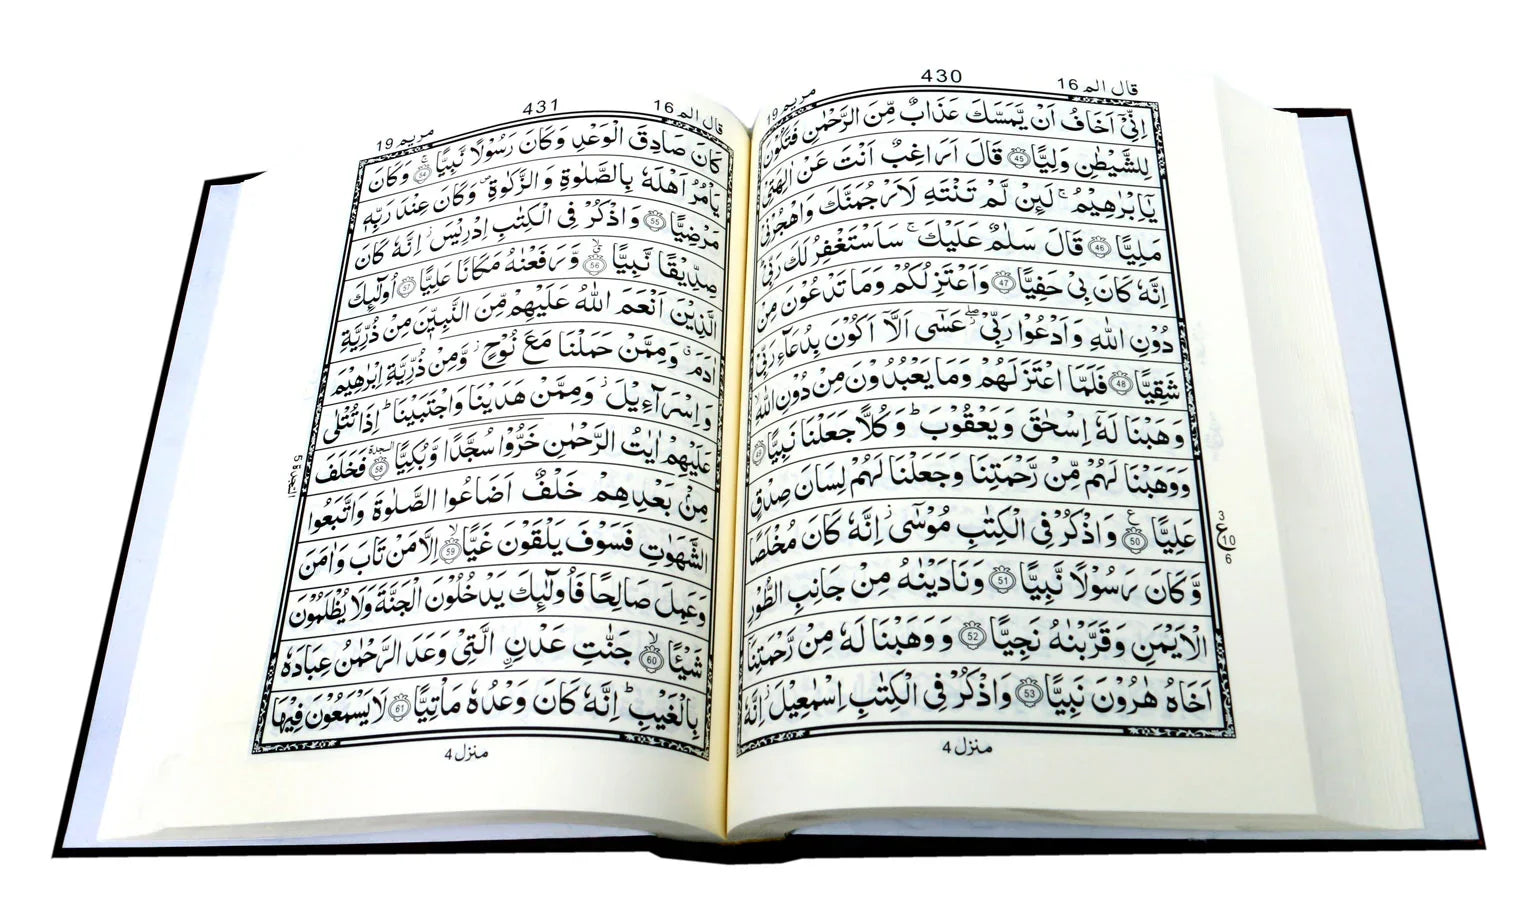 قال الم 16
430
مريم 19
اِنِّیْۤ اَخَافُ اَنْ یَّمَسَّكَ عَذَابٌ مِّنَ الرَّحْمٰنِ فَتَكُوْنَ
لِلشَّیْطٰنِ وَلِیًّا 45 قَالَ اَرَاغِبٌ اَنْتَ عَنْ اٰلِهَتِیْ
یٰۤاِبْرٰهِیْمُ ۚ لَئِنْ لَّمْ تَنْتَهِ لَاَرْجُمَنَّكَ وَاهْجُرْنِیْ
مَلِیًّا 46 قَالَ سَلٰمٌ عَلَیْكَ ۚ سَاَسْتَغْفِرُ لَكَ رَبِّیْ
اِنَّهٗ كَانَ بِیْ حَفِیًّا 47 وَاَعْتَزِلُكُمْ وَمَا تَدْعُوْنَ مِنْ
دُوْنِ اللّٰهِ وَاَدْعُوْا رَبِّیْ ۖ عَسٰۤی اَلَّاۤ اَكُوْنَ بِدُعَآءِ رَبِّیْ
شَقِیًّا 48 فَلَمَّا اعْتَزَلَهُمْ وَمَا یَعْبُدُوْنَ مِنْ دُوْنِ اللّٰهِ
وَهَبْنَا لَهٗۤ اِسْحٰقَ وَیَعْقُوْبَ ؕ وَكُلًّا جَعَلْنَا نَبِیًّا 49
وَوَهَبْنَا لَهُمْ مِّنْ رَّحْمَتِنَا وَجَعَلْنَا لَهُمْ لِسَانَ صِدْقٍ
عَلِیًّا 50 وَاذْكُرْ فِی الْكِتٰبِ مُوْسٰۤی ؗ اِنَّهٗ كَانَ مُخْلَصًا
3
ع
10
6
وَّكَانَ رَسُوْلًا نَّبِیًّا 51 وَنَادَیْنٰهُ مِنْ جَانِبِ الطُّوْرِ
الْاَیْمَنِ وَقَرَّبْنٰهُ نَجِیًّا 52 وَوَهَبْنَا لَهٗ مِنْ رَّحْمَتِنَاۤ
اَخَاهُ هٰرُوْنَ نَبِیًّا 53 وَاذْكُرْ فِی الْكِتٰبِ اِسْمٰعِیْلَ ؗ اِنَّهٗ
منزل 4
قال الم 16
431
مريم 19
كَانَ صَادِقَ الْوَعْدِ وَكَانَ رَسُوْلًا نَّبِیًّا 54 وَكَانَ
یَاْمُرُ اَهْلَهٗ بِالصَّلٰوةِ وَالزَّكٰوةِ ۪ وَكَانَ عِنْدَ رَبِّهٖ
مَرْضِیًّا 55 وَاذْكُرْ فِی الْكِتٰبِ اِدْرِیْسَ ؗ اِنَّهٗ كَانَ
صِدِّیْقًا نَّبِیًّا 56 وَّرَفَعْنٰهُ مَكَانًا عَلِیًّا 57 اُولٰٓئِكَ
الَّذِیْنَ اَنْعَمَ اللّٰهُ عَلَیْهِمْ مِّنَ النَّبِیّٖنَ مِنْ ذُرِّیَّةِ
اٰدَمَ ۗ وَمِمَّنْ حَمَلْنَا مَعَ نُوْحٍ ؗ وَّمِنْ ذُرِّیَّةِ اِبْرٰهِیْمَ
وَاِسْرَآءِیْلَ ؗ وَمِمَّنْ هَدَیْنَا وَاجْتَبَیْنَا ؕ اِذَا تُتْلٰی
عَلَیْهِمْ اٰیٰتُ الرَّحْمٰنِ خَرُّوْا سُجَّدًا وَّبُكِیًّا 58 السجدة فَخَلَفَ
السجدة 5
مِنْۢ بَعْدِهِمْ خَلْفٌ اَضَاعُوا الصَّلٰوةَ وَاتَّبَعُوا
الشَّهَوٰتِ فَسَوْفَ یَلْقَوْنَ غَیًّا 59 اِلَّا مَنْ تَابَ وَاٰمَنَ
وَعَمِلَ صَالِحًا فَاُولٰٓئِكَ یَدْخُلُوْنَ الْجَنَّةَ وَلَا یُظْلَمُوْنَ
شَیْـًٔا 60 جَنّٰتِ عَدْنِ ۨالَّتِیْ وَعَدَ الرَّحْمٰنُ عِبَادَهٗ
بِالْغَیْبِ ؕ اِنَّهٗ كَانَ وَعْدُهٗ مَاْتِیًّا 61 لَا یَسْمَعُوْنَ فِیْهَا
منزل 4